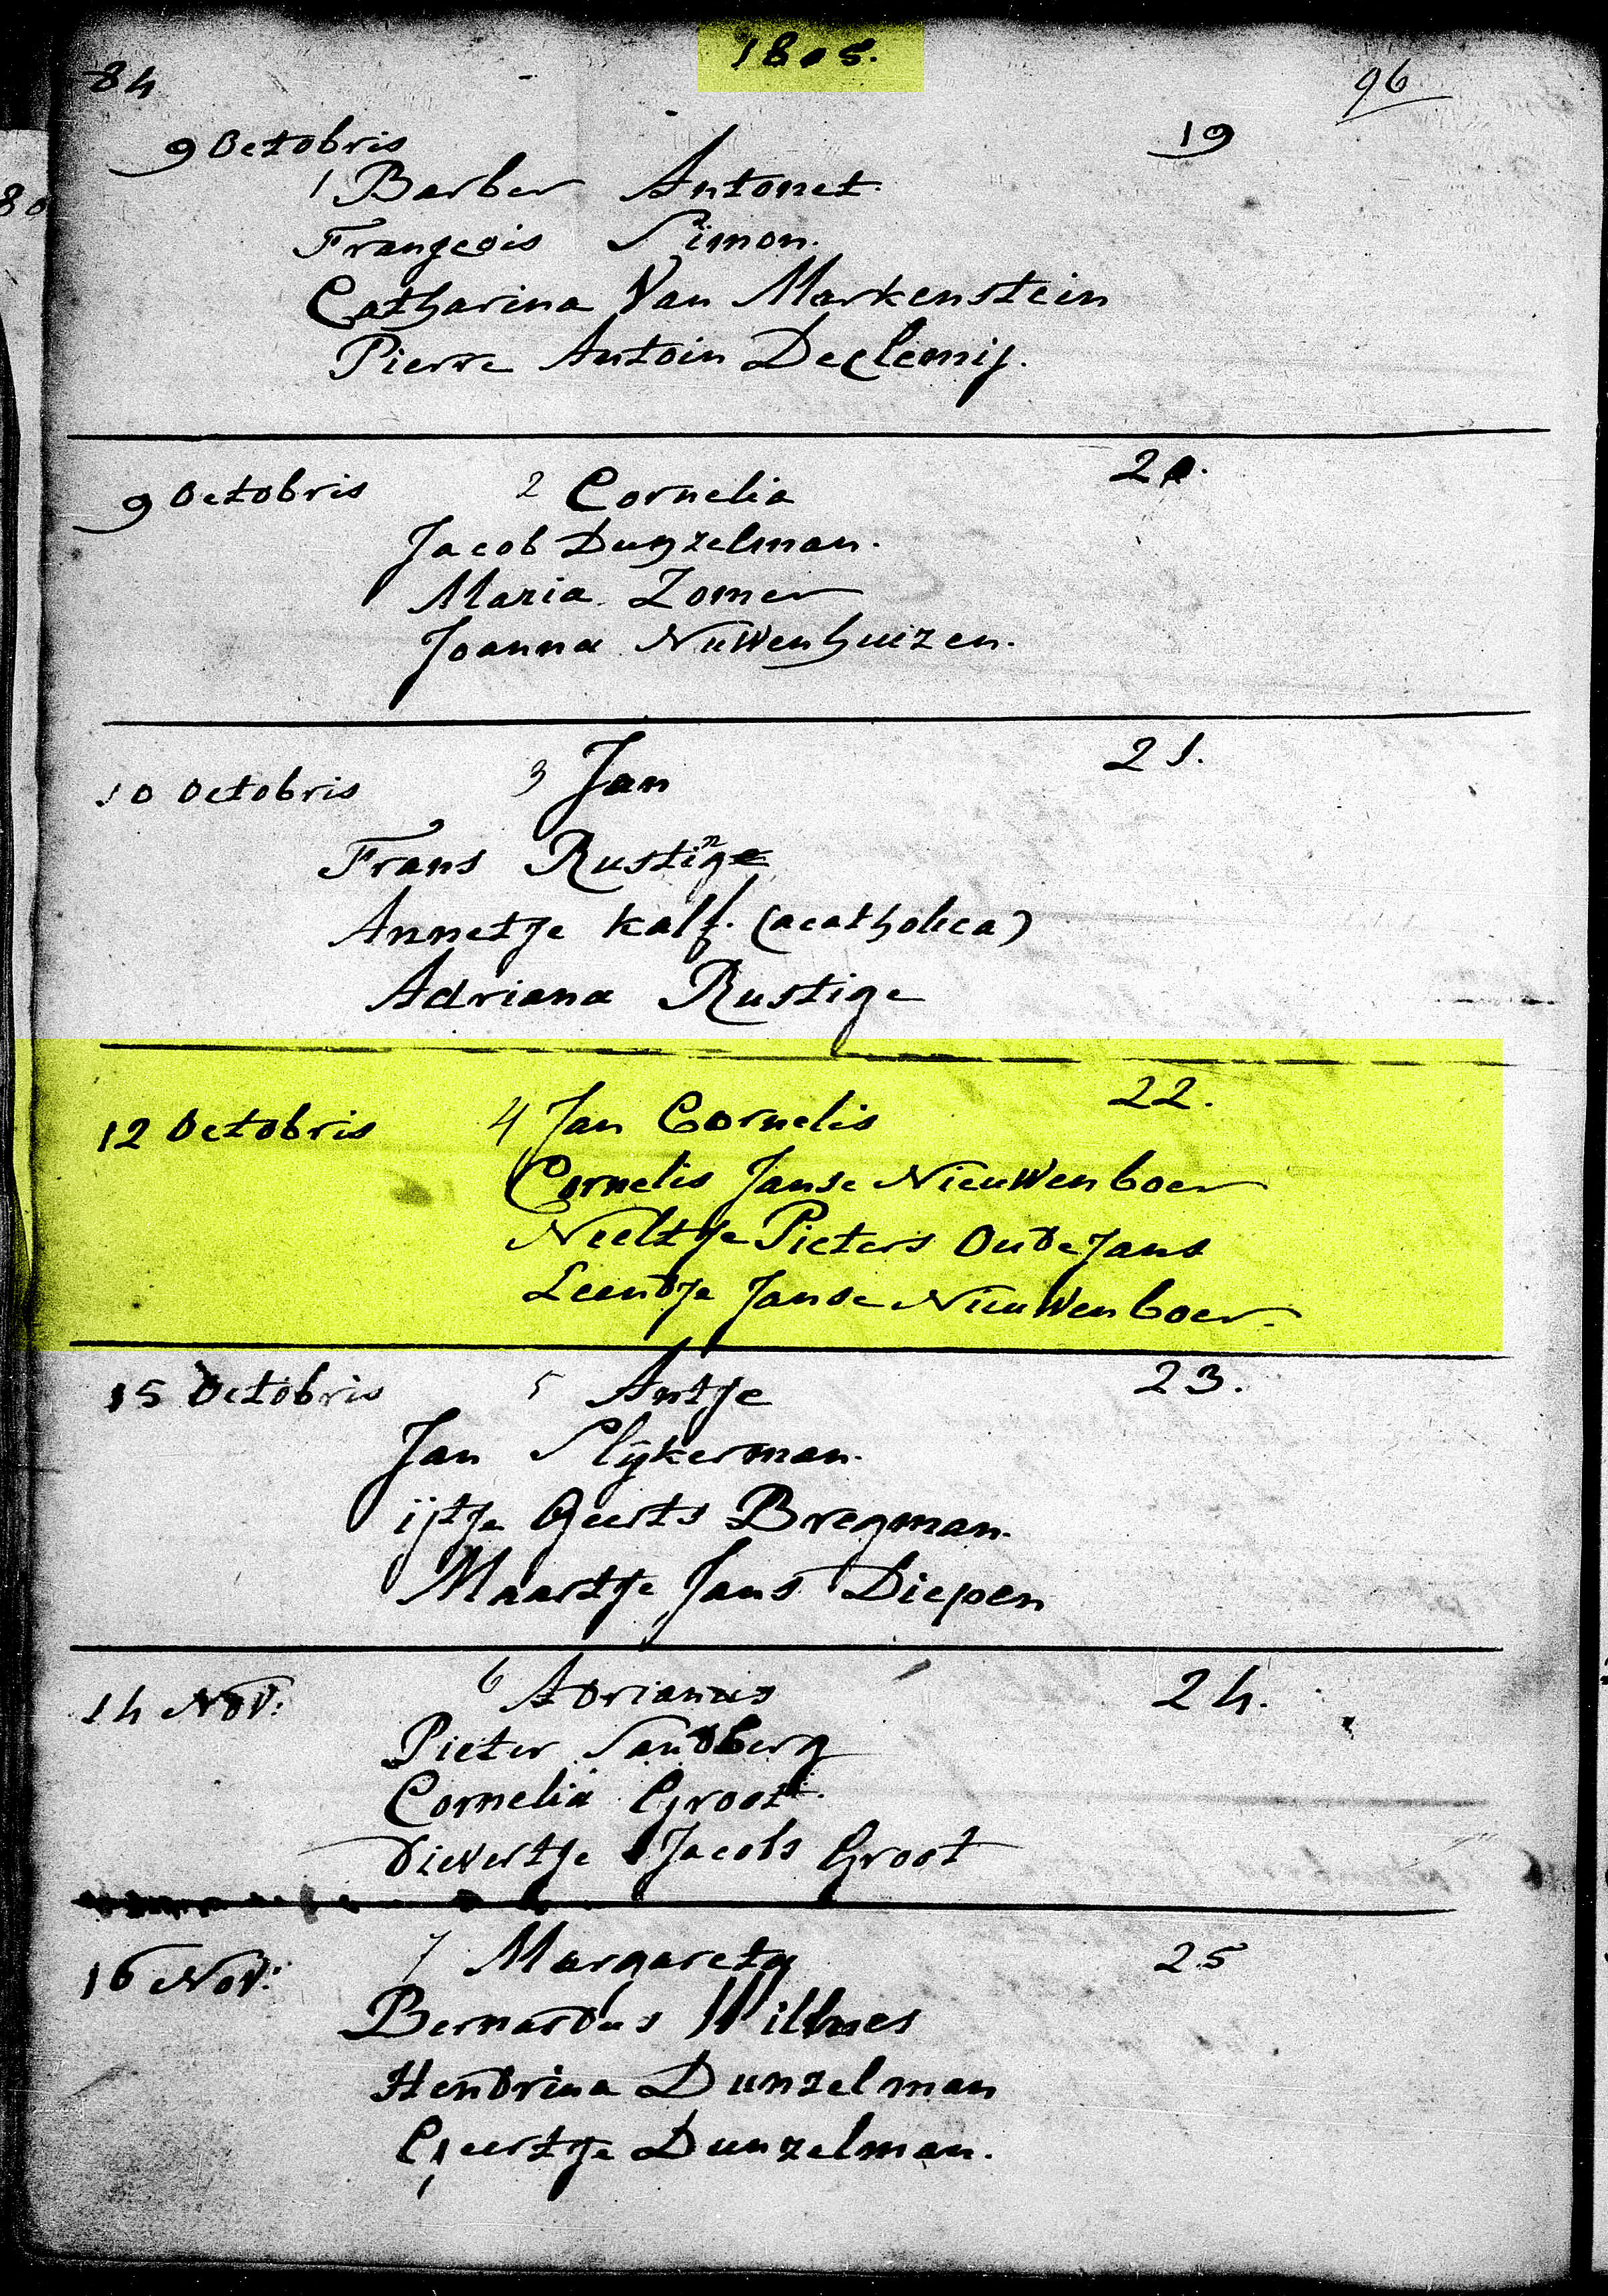 1805.
84
96
9 Octobris
19
1 Barber Antonet.
Françcois Simon.
Catharina Van Markenstein
Pierre Antoin Declemij.
20.
9 Octobris 2 Cornelia
Jacob Dunzelman.
Maria Zomer
Joanna Nuwenhuizen.
21.
10 Octobris 3 Jan
Frans Rustige
Annetje Kalf. (acatholica)
Adriana Rustige
22.
12 Octobris 4 Jan Cornelis
Cornelis Janse Nieuwenboer
Neeltje Pieters Oudejans
Leendje Janse Nieuwenboer.
23.
15 Octobris 5 Antje
Jan Slijkerman.
ijtje Geerts Bregman.
Maartje Jans Diepen
24.
14 Nov: 6 Adrianus
Pieter Sandberg
Cornelia Groot.
Dievertje Jacobs Groot
25
16 Nov: 7 Margareta
Bernardus Willmes
Hendrina Dunzelman
Geertje Dunzelman.